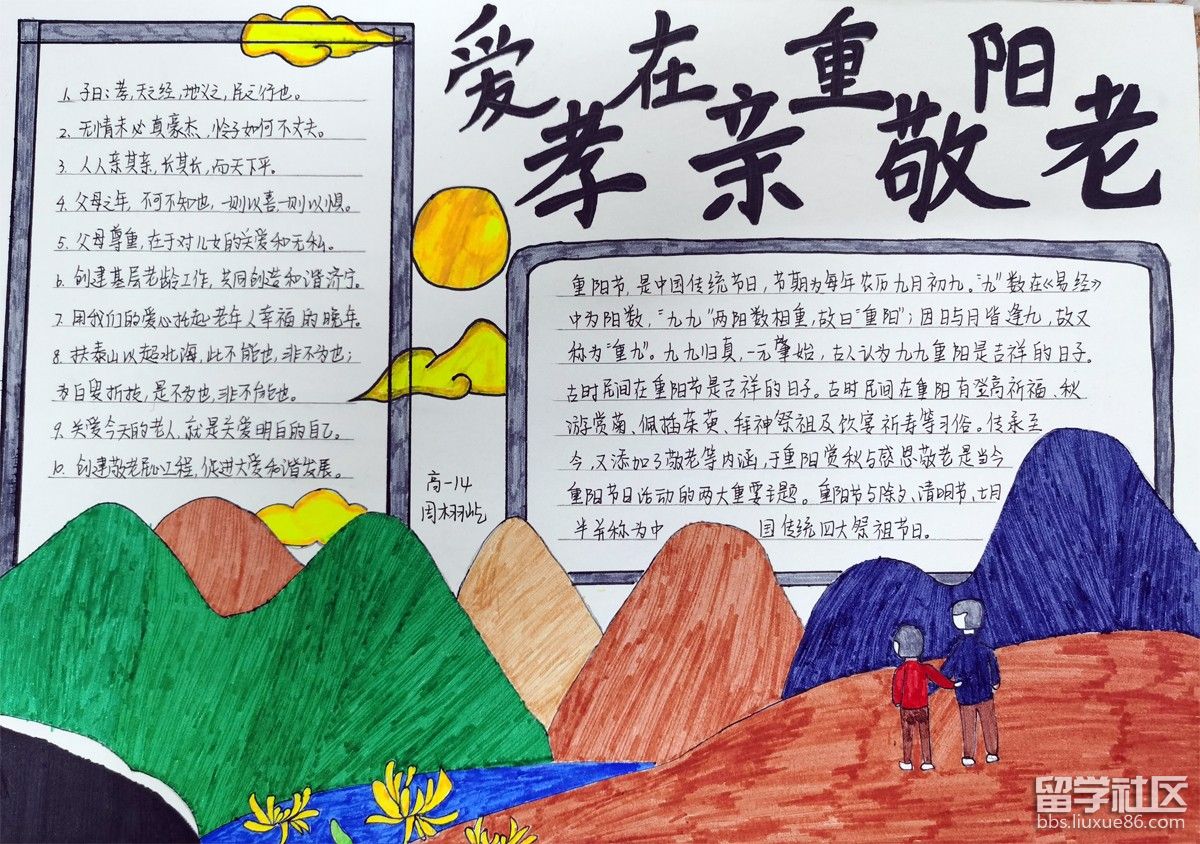 爱在重阳
孝亲敬老
1. 子曰：孝，天之经，地义之，民之行也。
2. 无情未必真豪杰，怜子如何不丈夫。
3. 人人亲其亲，长其长，而天下平。
4. 父母之年，不可不知也，一则以喜，一则以惧。
5. 父母尊重，在于对儿女的关爱和无私。
6. 创建基层老龄工作，共同创造和谐济宁。
7. 用我们的爱心托起老年人幸福的晚年。
8. 挟泰山以超北海，此不能也，非不为也；
为白叟折枝，是不为也，非不能也。
9. 关爱今天的老人，就是关爱明日的自己。
10. 创建敬老爱心工程，促进大爱和谐发展。
高一14
周栩屹
重阳节，是中国传统节日，节期为每年农历九月初九。“九”数在《易经》
中为阳数，“九九”两阳数相重，故曰“重阳”；因日与月皆逢九，故又
称为“重九”。九九归真，一元肇始，古人认为九九重阳是吉祥的日子。
古时民间在重阳节是吉祥的日子。古时民间在重阳有登高祈福、秋
游赏菊、佩插茱萸、拜神祭祖及饮宴祈寿等习俗。传承至
今，又添加了敬老等内涵，于重阳赏秋与感恩敬老是当今
重阳节日活动的两大重要主题。重阳节与除夕、清明节、七月
半并称为中国传统四大祭祖节日。
留学社区
bbs.liuxue86.com